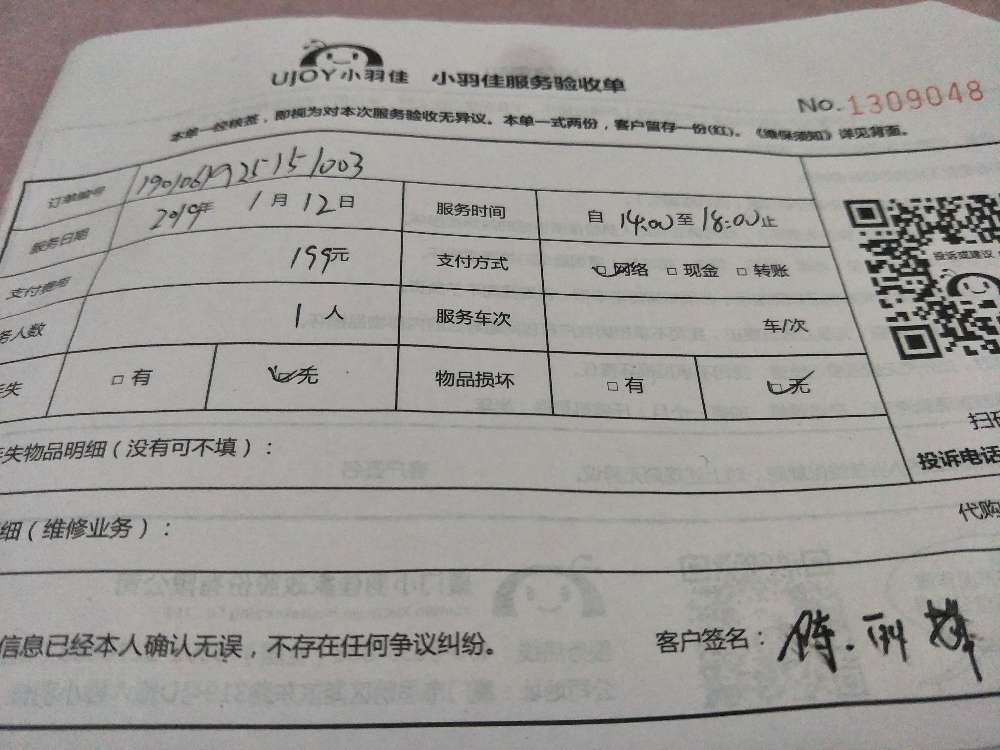 UJOY小羽佳 小羽佳服务验收单
No.1309048
本单一经核签，即视为对本次服务验收无异议。本单一式两份，客户留存一份(红)。《维保须知》详见背面。
订单编号
服务日期 2019年 1月 12日 服务时间 自 14:00 至 18:00 止
支付费用 199元 支付方式 网络 □现金 □转账
务人数 1人 服务车次 车/次
失 □有 无 物品损坏 □有 无
投诉或建议
失物品明细（没有可不填）：
扫
投诉电话
细（维修业务）：
代购
信息已经本人确认无误，不存在任何争议纠纷。 客户签名：陈